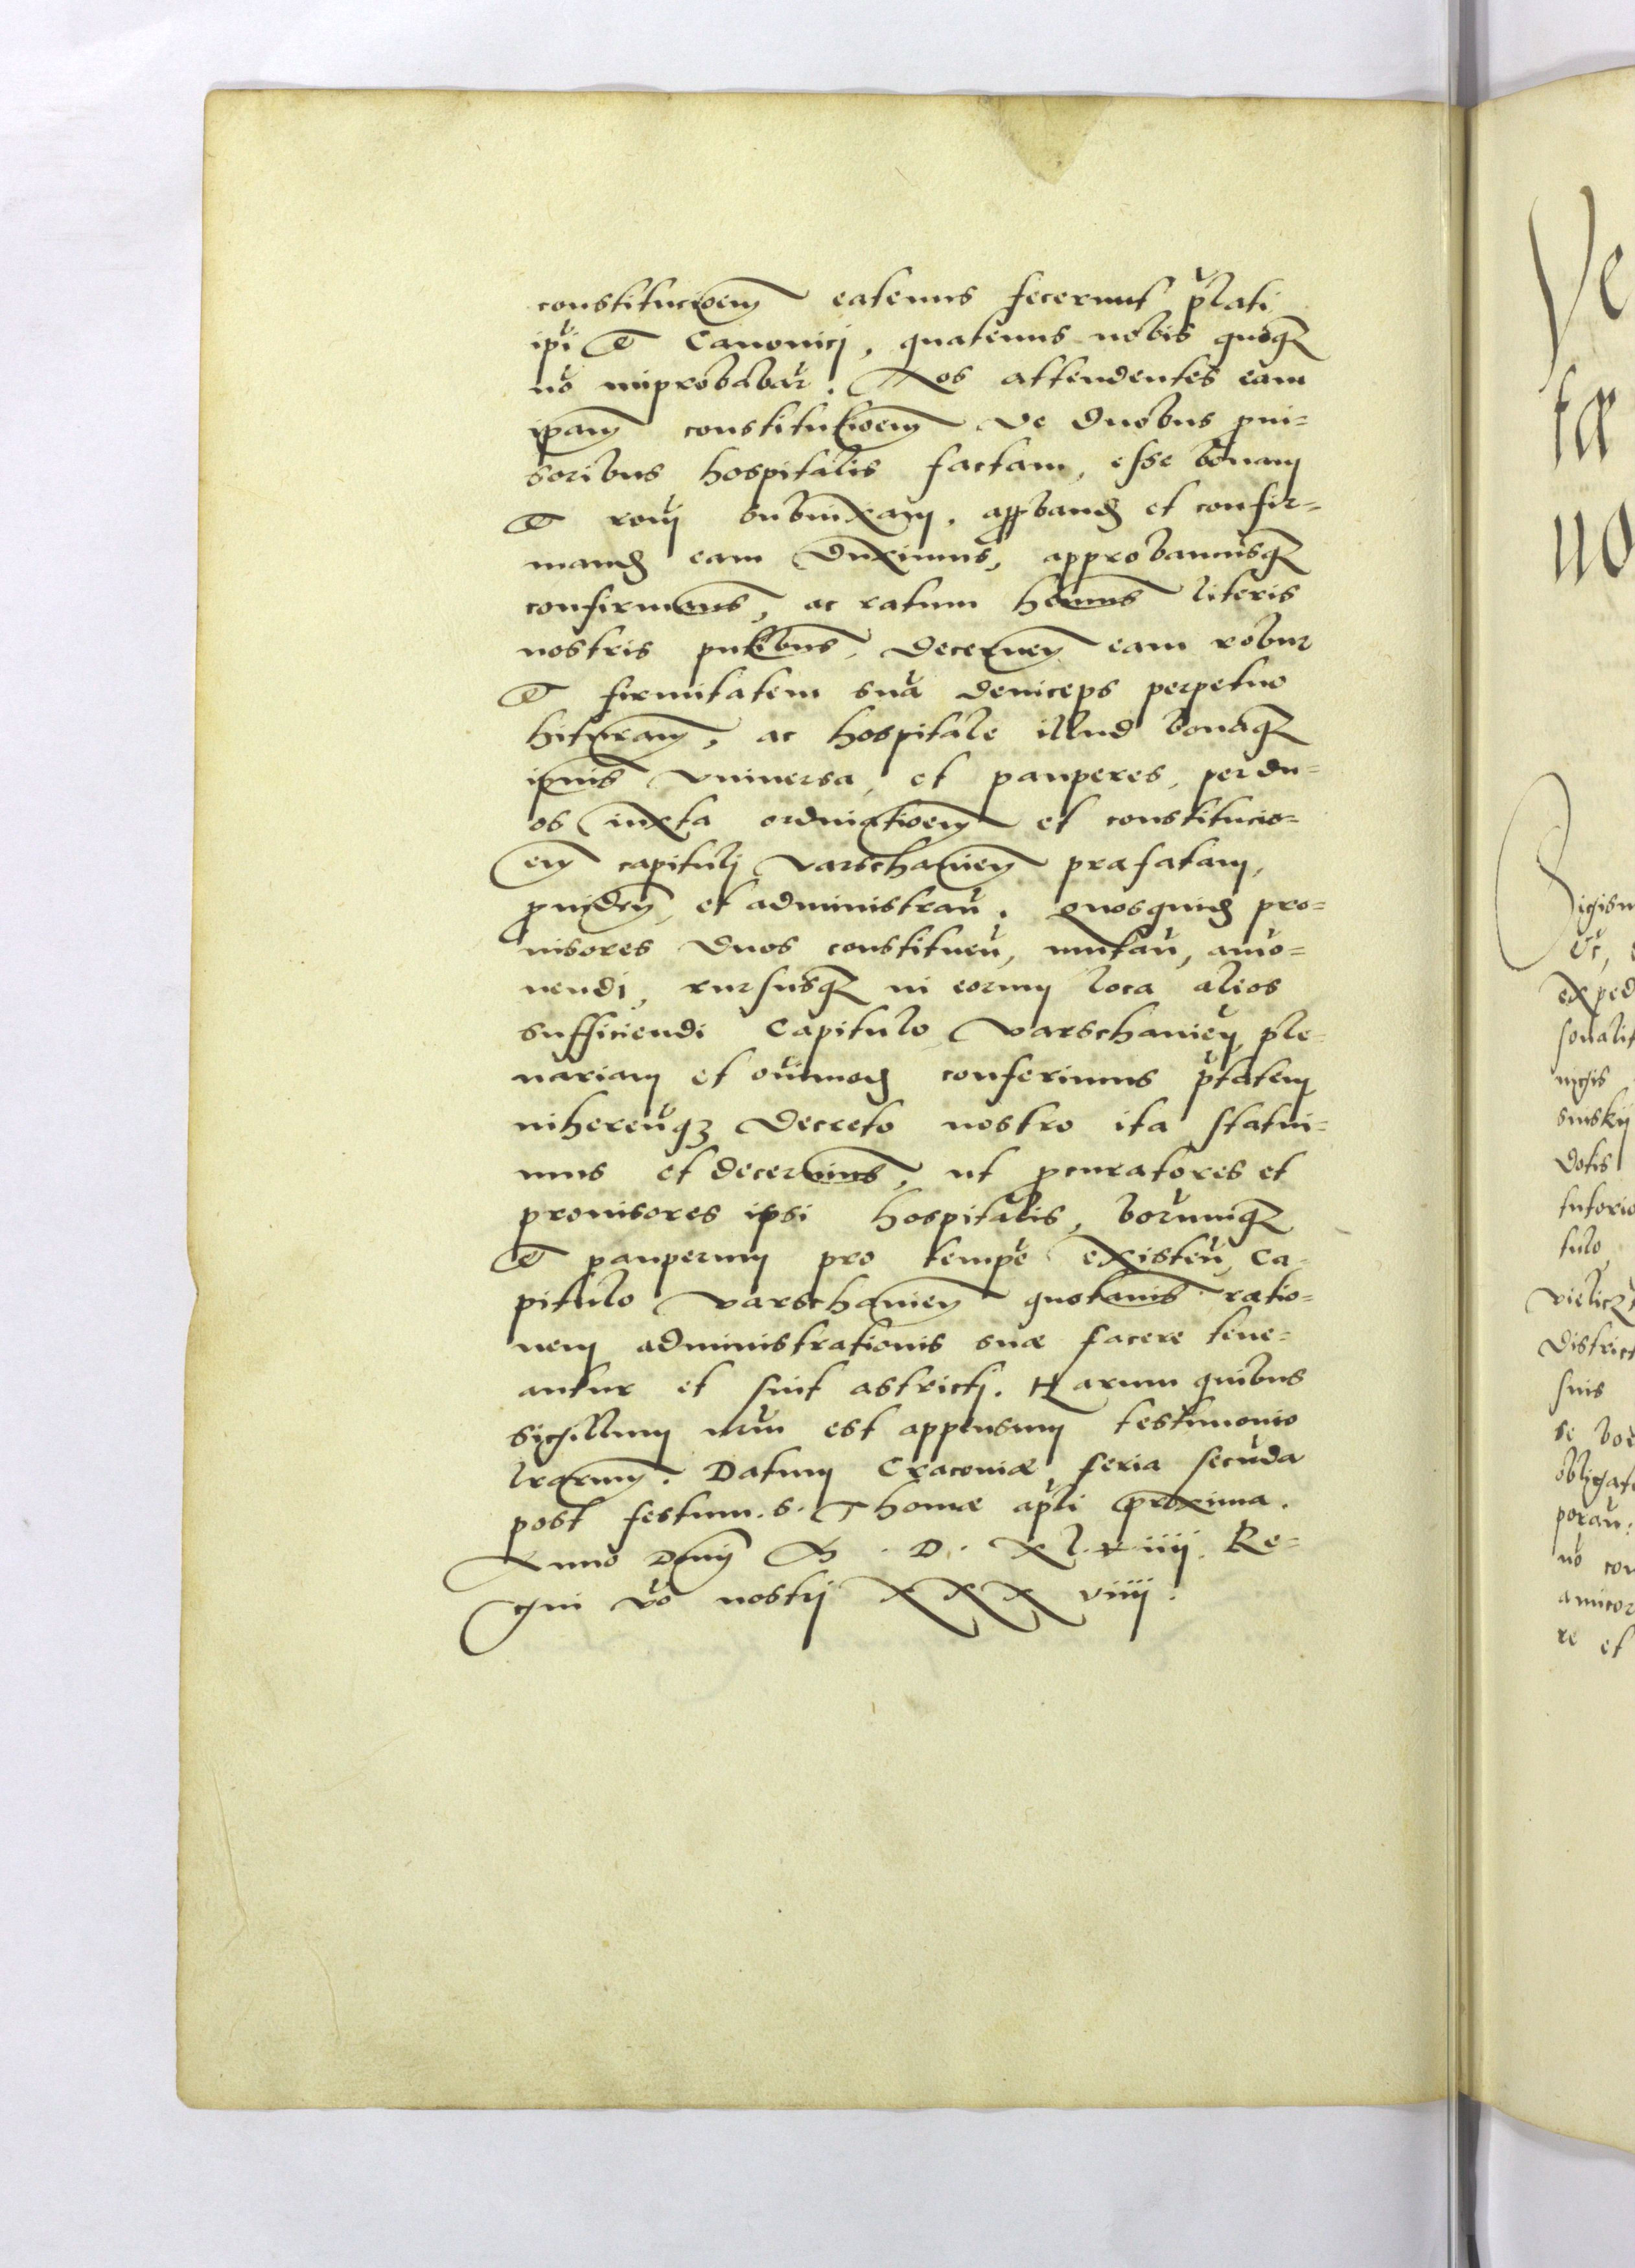 constitucioem eatenus fecerunt plati
ipi et Canonicj, quatenus nobis quoqz
no improbabar. Nos attendentes eam
ipam constitutioem de duobus pui=
soribus hospitalis factam, esse bonam
et roni subnixam, appband et confir=
mand eam duximus, approbamusqz
confirmams, ac ratum hemus literis
nostris pntibus, decernen eam robur
et firmitatem sua deinceps perpetuo
hituram, ac hospitale illud bonaqz
ipius vniuersa, et pauperes, per du=
os iuxta ordinatioem et constitucio=
em capitulj varschauien præfatam,
puiden et administran. Quosquid pro=
uisores duos constituen, mutan, amo=
uendi, rursusqz in eorum loca alios
sufficiendi Capitulo varschauien ple=
nariam et oimod conferimus ptatem
inherenqz decreto nostro ita statui=
mus et decernims, ut pcuratores et
prouisores ipsi hospitalis, bonumqz
et pauperum pro tempe existen, Ca=
pitulo varschauien quotanis ratio=
nem administrationis suæ facere tene=
antur et sint astrictj. Harum quibus
sigillum nrm est appensum testimonio
lrarum. Datum Cracouiæ, feria secuda
post festum .s. Thomæ apli proxima.
Anno Dmi M . D . Xl.viiij. Re=
gni vo nostrj XXX viiij.
Ve
tæ
no
Sigism
expedi
sonalit
nigis
sinskij
dotis
tutorio
tulo
vielicz
district
suis
se bo
obligat
poran:
no con
amicor
re et